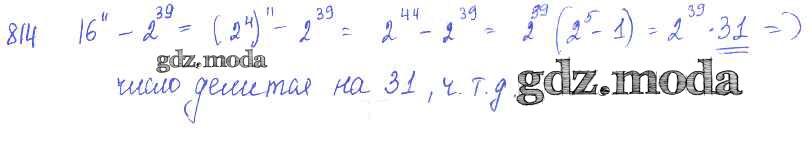 814 16¹¹ - 2³⁹ = (2⁴)¹¹ - 2³⁹ = 2⁴⁴ - 2³⁹ = 2³⁹(2⁵ - 1) = 2³⁹ · 31 =>
gdz.moda
число делится на 31, ч. т. д.
gdz.moda